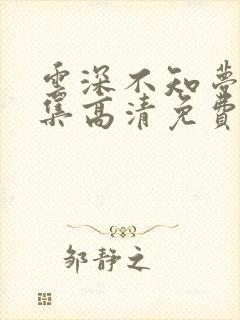 雲深不知夢
集高清免費
邹静之